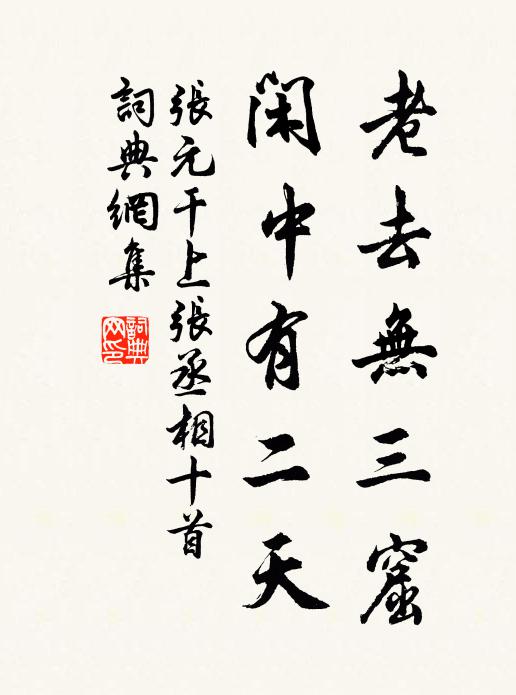 老去無三窟
閑中有二天
張元干上張丞相十首
詞典網集
詞典
网印